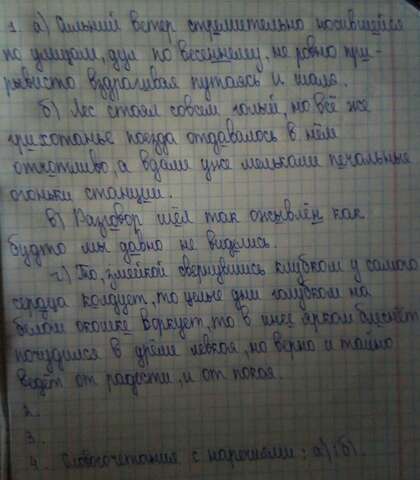 1. а) Сильный ветер стремительно носившейся
по улицам, дул по весеннему, не ровно при-
рывисто вздрагивая путаясь и шаля.
б) Лес стоял совсем голый, но всё же
грихотанье поезда отдавалось в нём
отчётливо, а вдали уже мелькали печальные
огоньки станции.
в) Разговор шёл так оживлён как
будто мы давно не виделись.
г) То, змейкой свернувшись клубком у самого
сердца колдует, то целые дни голубком на
белом окошке воркует, то в инее ярком блеснёт
почудился в дрёме левкоя, но верно и тайно
ведёт от радости, и от покоя.
2.
3.
4. Словосочетания с наречиями: а) б)